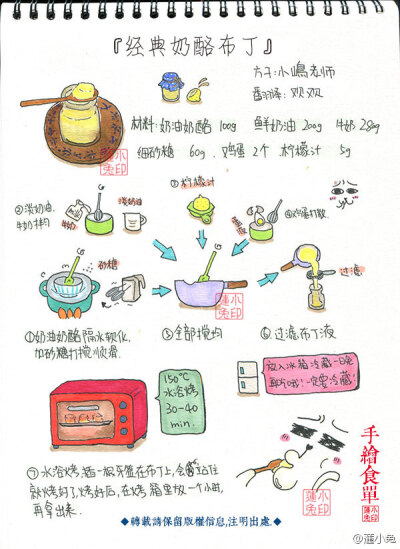 『经典奶酪布丁』
方子:小嶋老师
翻译:欢欢
材料:奶油奶酪 100g 鲜奶油 200g 牛奶 280g
细砂糖 60g 鸡蛋2个 柠檬汁 5g
小兔印
③柠檬汁
②淡奶油,
牛奶拌匀
牛奶
淡奶油
④鸡蛋打散
砂糖
过滤
①奶油奶酪隔水软化,
加砂糖打搅顺滑.
⑤全部搅均
⑥过滤布丁液
150℃
水浴烤
30-40
min.
放入冰箱冷藏一日夜
即可哦!一定要冷藏!
⑦水浴烤,插一根牙签在布丁上,会站住
就烤好了,烤好后,在烤箱里放一个小时,
再拿出来.
手繪食單
小兔印
◆轉載請保留版權信息,注明出處.◆
@蓮小兔